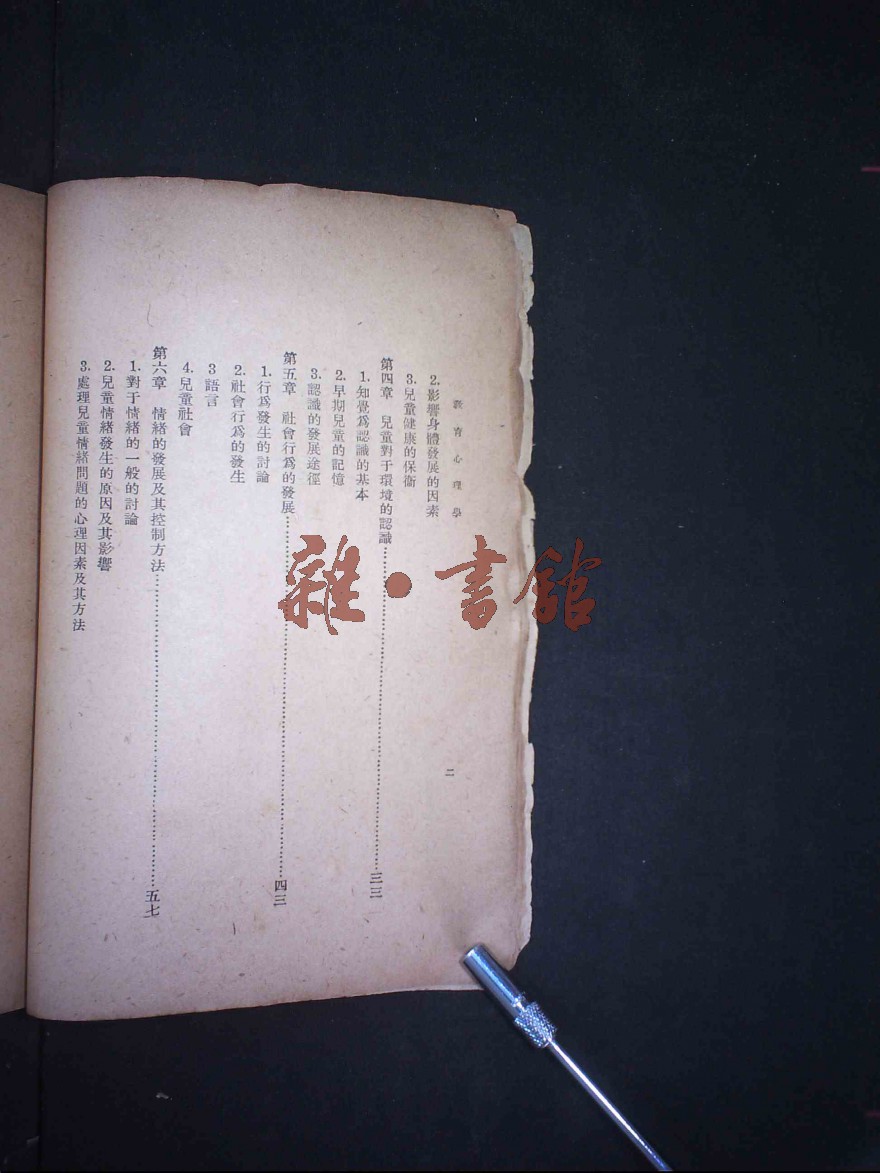 教育心理學
二
2. 影響身體發展的因素
3. 兒童健康的保衞
第四章 兒童對于環境的認識……三三
1. 知覺爲認識的基本
2. 早期兒童的記憶
3. 認識的發展途徑
第五章 社會行爲的發展……四三
1. 行爲發生的討論
2. 社會行爲的發生
3 語言
4. 兒童社會
第六章 情緒的發展及其控制方法……五七
1. 對于情緒的一般的討論
2. 兒童情緒發生的原因及其影響
3. 處理兒童情緒問題的心理因素及其方法
雜·書館